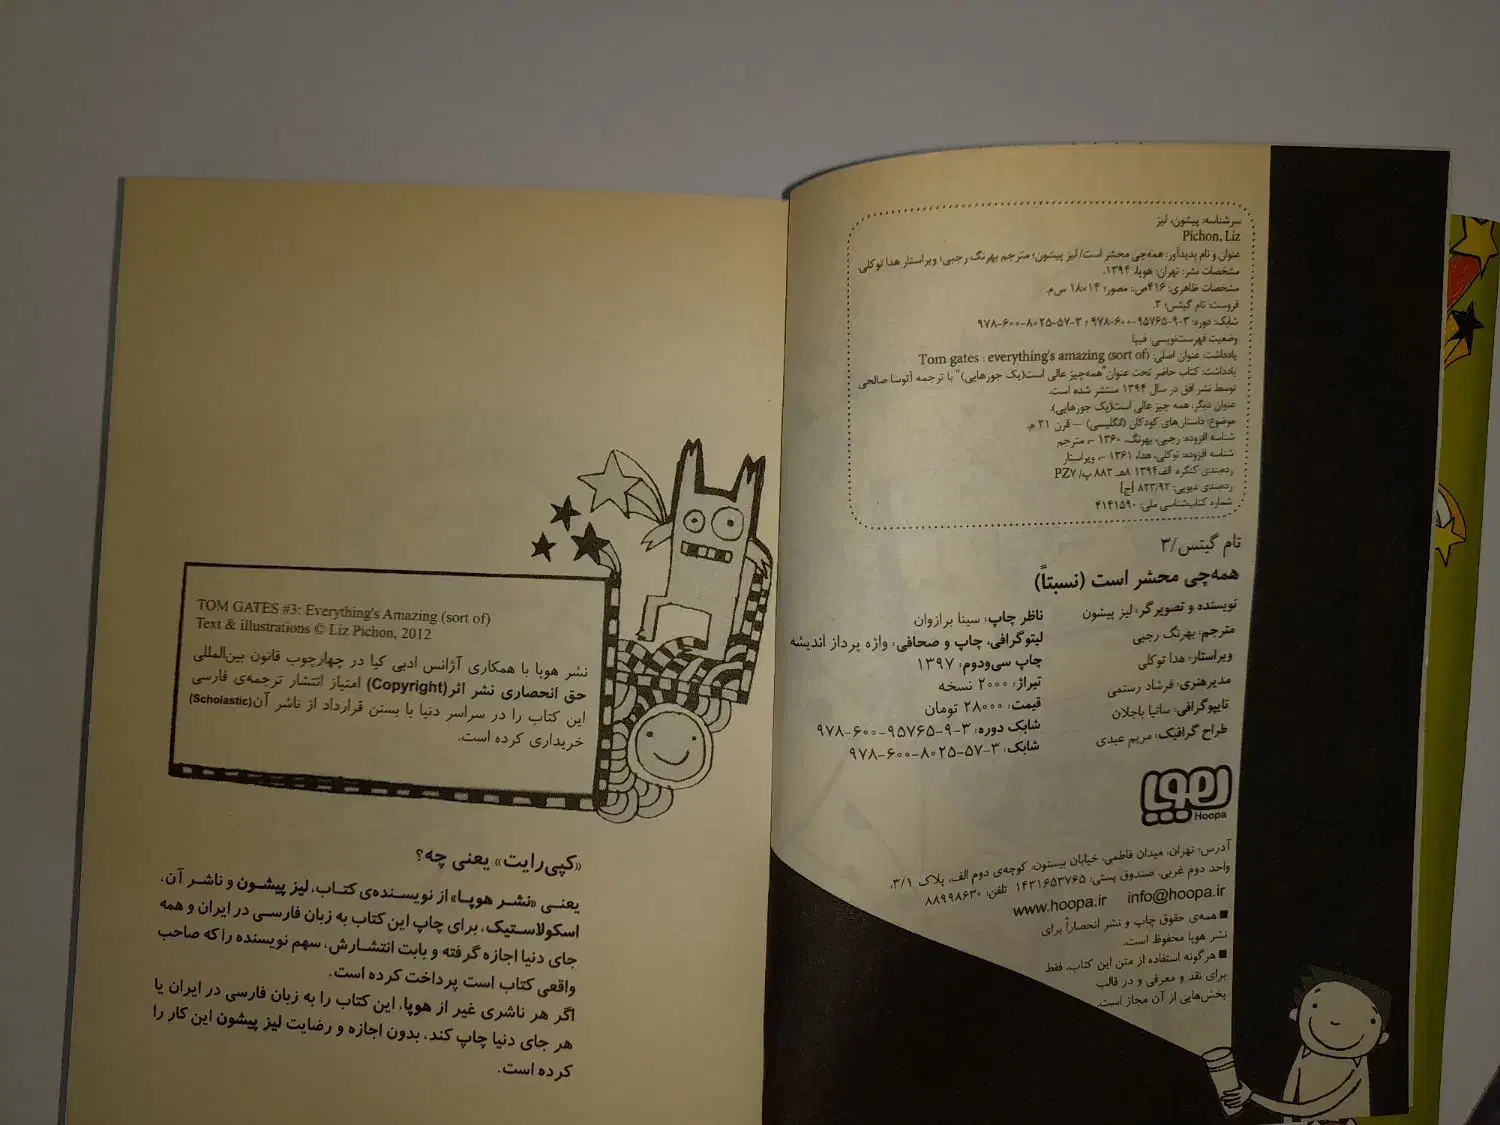 سرشناسه: پیشون، لیز
Pichon, Liz
عنوان و نام پدیدآور: همه‌چی محشر است/ لیز پیشون؛ مترجم بهرنگ رجبی؛ ویراستار هدا توکلی.
مشخصات نشر: تهران: هوپا، ۱۳۹۴.
مشخصات ظاهری: ۴۱۶ص.: مصور؛ ۱۴×۱۸ س‌م.
فروست: تام گیتس؛ ۳.
شابک: دوره: ۳-۹-۹۵۷۶۵-۶۰۰-۹۷۸ ؛ ۳-۵۷-۸۰۲۵-۶۰۰-۹۷۸
وضعیت فهرست‌نویسی: فیپا
یادداشت: عنوان اصلی: Tom gates : everything's amazing (sort of)
یادداشت: کتاب حاضر تحت عنوان "همه‌چیز عالی است(یک جورهایی)" با ترجمه آتوسا صالحی
توسط نشر افق در سال ۱۳۹۴ منتشر شده است.
عنوان دیگر: همه چیز عالی است(یک جورهایی).
موضوع: داستان‌های کودکان (انگلیسی) -- قرن ۲۱ م.
شناسه افزوده: رجبی، بهرنگ، ۱۳۶۰ -، مترجم
شناسه افزوده: توکلی، هدا، ۱۳۶۱ -، ویراستار
رده‌بندی کنگره: الف۱۳۹۴ ۸هـ ۸۸۳ پ/ PZ۷
رده‌بندی دیویی: ۸۲۳/۹۲ [ج]
شماره کتاب‌شناسی ملی: ۴۱۴۱۵۹۰
تام گیتس/۳
همه‌چی محشر است (نسبتاً)
نویسنده و تصویرگر: لیز پیشون
مترجم: بهرنگ رجبی
ویراستار: هدا توکلی
مدیرهنری: فرشاد رستمی
تایپوگرافی: ساتیا باجلان
طراح گرافیک: مریم عبدی
ناظر چاپ: سینا برازوان
لیتوگرافی، چاپ و صحافی: واژه پرداز اندیشه
چاپ سی‌ودوم: ۱۳۹۷
تیراژ: ۲۰۰۰ نسخه
قیمت: ۲۸۰۰۰ تومان
شابک دوره: ۳-۹-۹۵۷۶۵-۶۰۰-۹۷۸
شابک: ۳-۵۷-۸۰۲۵-۶۰۰-۹۷۸
هوپا
Hoopa
آدرس: تهران، میدان فاطمی، خیابان بیستون، کوچه‌ی دوم الف، پلاک ۳/۱،
واحد دوم غربی. صندوق پستی: ۱۴۳۱۶۵۳۷۶۵ تلفن: ۸۸۹۹۸۶۳۰
www.hoopa.ir info@hoopa.ir
■ همه‌ی حقوق چاپ و نشر انحصاراً برای
نشر هوپا محفوظ است.
■ هرگونه استفاده از متن این کتاب، فقط
برای نقد و معرفی و در قالب
بخش‌هایی از آن مجاز است.
TOM GATES #3: Everything's Amazing (sort of)
Text & illustrations © Liz Pichon, 2012
نشر هوپا با همکاری آژانس ادبی کیا در چهارچوب قانون بین‌المللی
حق انحصاری نشر اثر(Copyright) امتیاز انتشار ترجمه‌ی فارسی
این کتاب را در سراسر دنیا با بستن قرارداد از ناشر آن(Scholastic)
خریداری کرده است.
«کپی‌رایت» یعنی چه؟
یعنـی «نشـر هوپـا» از نویسـنده‌ی کتاب، لیز پیشـون و ناشـر آن،
اسکولاسـتیک، برای چاپ این کتاب به زبان فارسـی در ایران و همه
جای دنیا اجازه گرفته و بابت انتشـارش، سهم نویسنده را که صاحب
واقعی کتاب است پرداخت کرده است.
اگر هر ناشری غیر از هوپا، این کتاب را به زبان فارسی در ایران یا
هر جای دنیا چاپ کند، بدون اجازه و رضایت لیز پیشون این کار را
کرده است.